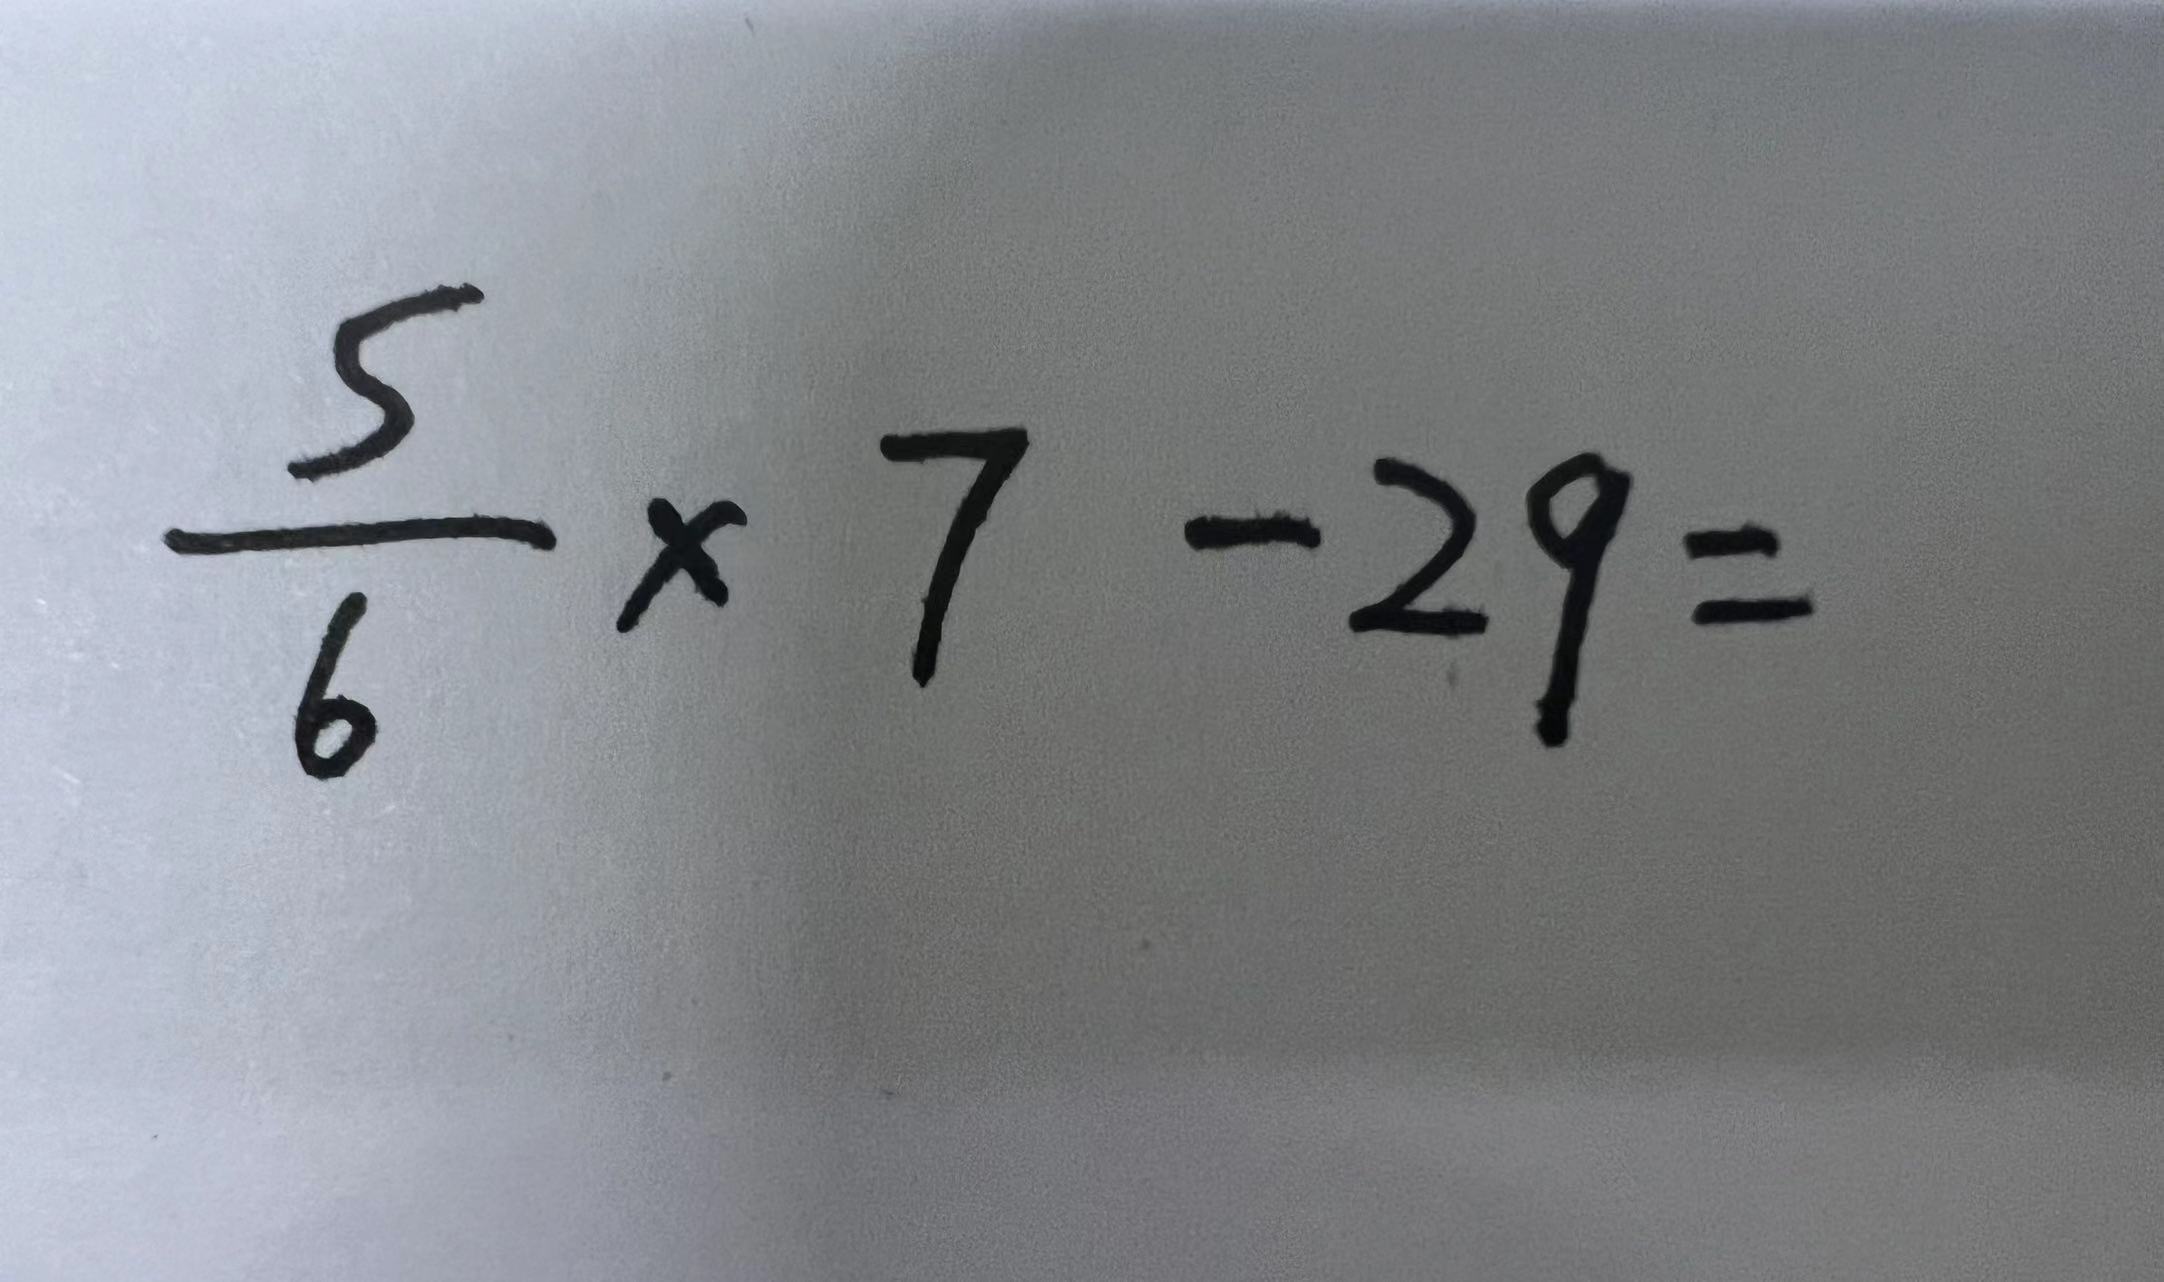 5/6 × 7 - 29 =